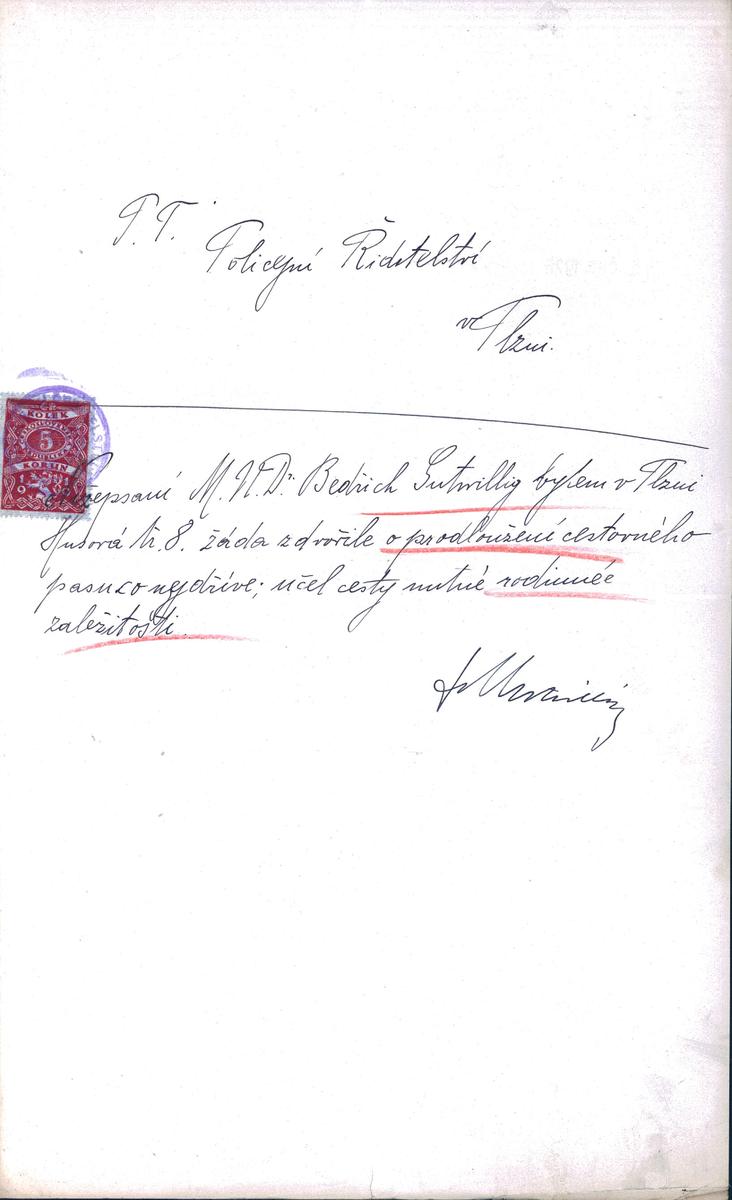 P. T.
Policejní Řiditelství
v Plzni.
KOLEK
5
KORUN
Nížepsaní M. U. Dr. Bedřich Gutwillig bytem v Plzni
Husová tř. 8. žáda zdvořile o prodloužení cestovného
pasu co nejdříve; učel cesty nutné rodinnée
zaležitosti.